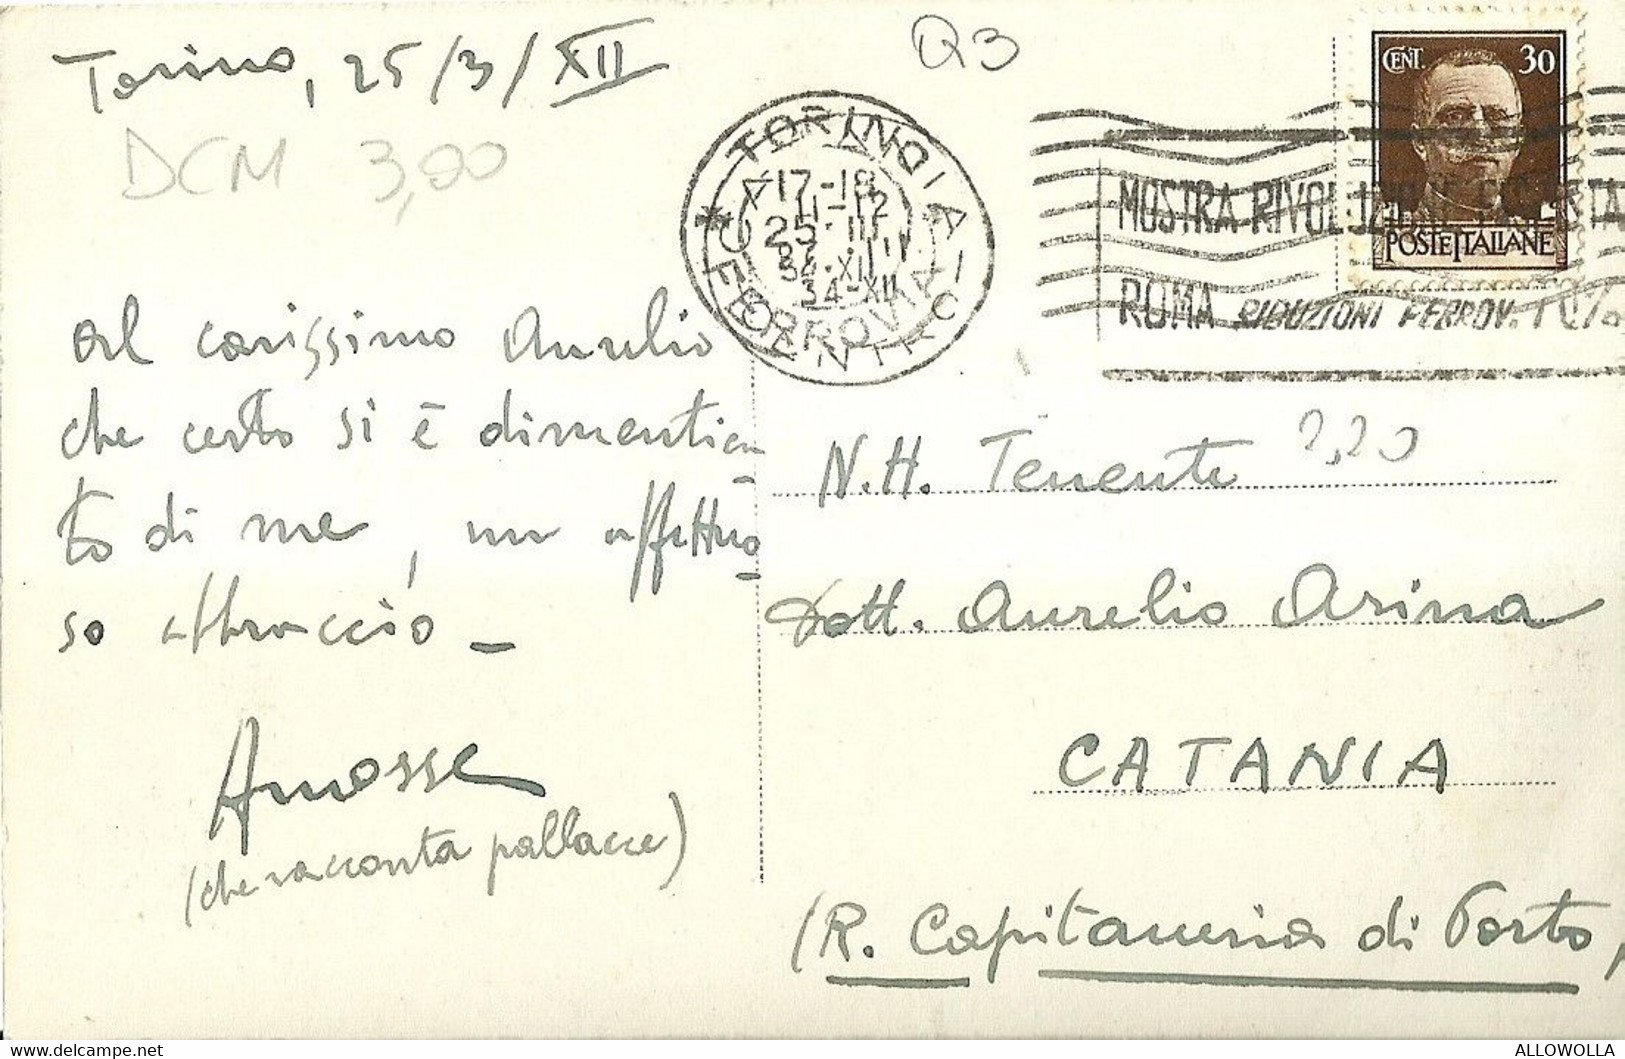 Torino, 25/3/XII
Q3
DCM 3,00
CENT. 30
POSTE ITALIANE
TORINO
17-18
11-12
25 III
34-XII
FERROVIA
CENTRO
MOSTRA RIVOLUZIONE FASCISTA
ROMA RIDUZIONI FERROV. 70%
al carissimo Aurelio
che certo si è dimentica
to di me, un affettuo
so abbraccio _
(che racconta pallacce)
N. H. Tenente
2,20
Dott. Aurelio Arina
CATANIA
(R. Capitaneria di Porto,
ALLOWOLLA
delcampe.net